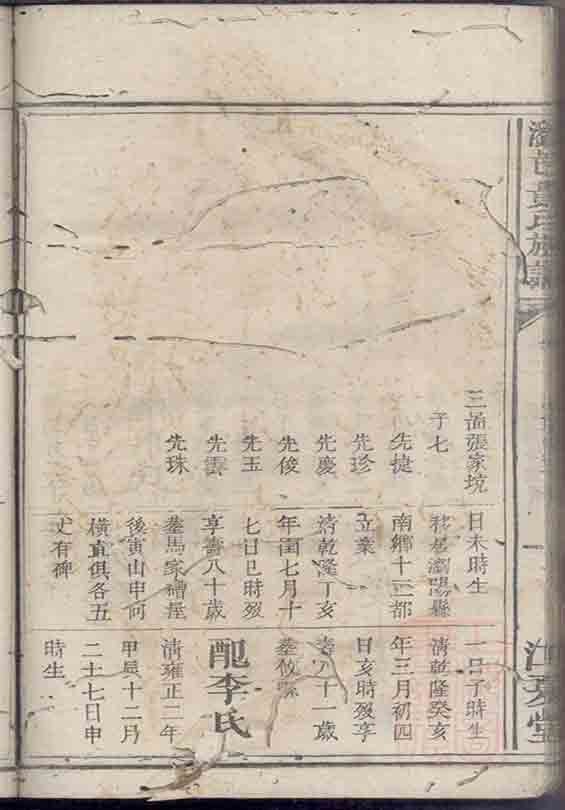 氏族譜
江夏堂
三啚張家坑
子七
先捷
先珍
先慶
先俊
先玉
先雲
先珠
日未時生
移居瀏陽縣
南鄉十三都
立業
清乾隆丁亥
年閏七月十
七日巳時歿
享壽八十歲
塟馬家礌屋
後寅山申向
橫直俱各五
丈有碑
一日子時生
清乾隆癸亥
年三月初四
日亥時歿享
壽八十一歲
塟攸縣
配李氏
清雍正二年
甲辰十二月
二十七日申
時生